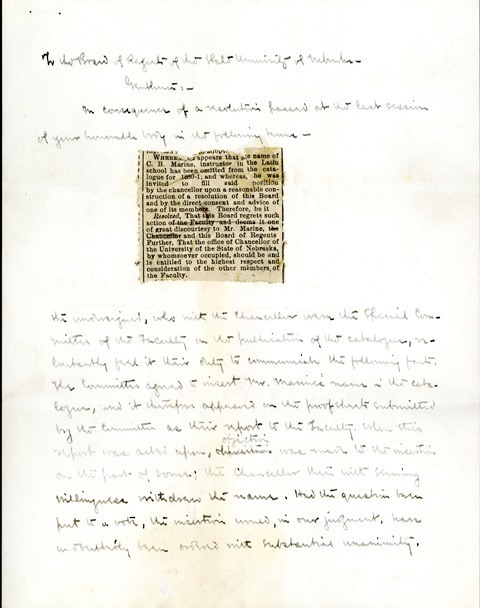 To the Board of Regents of the State University of Nebraska—
Gentlemen:—
In consequence of a resolution passed at the last session
of your honorable body in the following terms—
WHEREAS appears that the name of
C. B. Marine, instructor in the Latin
school has been omitted from the cata-
logue for 1880-1; and whereas, he was
invited to fill said position
by the chancellor upon a reasonable con-
struction of a resolution of this Board
and by the direct consent and advice of
one of its members. Therefore, be it
Resolved, That this Board regrets such
action of the Faculty and deems it one
of great discourtesy to Mr. Marine, the
Chancellor and this Board of Regents
Further, That the office of Chancellor of
the University of the State of Nebraska,
by whomsoever occupied, should be and
is entitled to the highest respect and
consideration of the other members of
the Faculty.
the undersigned, who with the Chancellor were the Special Com-
mittee of the Faculty on the publication of the catalogue, re-
luctantly feel it their duty to communicate the following facts.
The Committee agreed to insert Mr. Marine's name in the cata-
logue, and it therefore appeared on the proof sheets submitted
by the Committee as their report to the Faculty. When this
report was acted upon, objection was made to the insertion
on the part of some; the Chancellor then with seeming
willingness withdrew the name. Had the question been
put to a vote, the insertion would, in our judgment, have
undoubtedly been ordered with substantial unanimity.